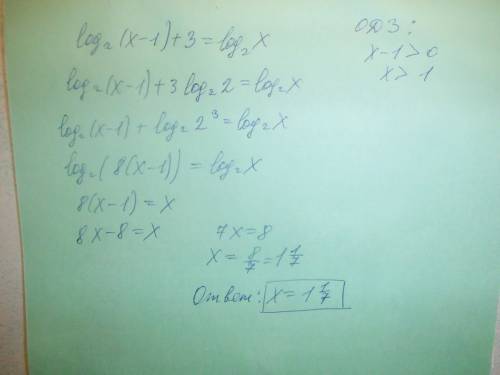 log₂(x-1)+3=log₂x
ОДЗ:
x-1>0
x>1
log₂(x-1)+3log₂2=log₂x
log₂(x-1)+log₂2³=log₂x
log₂(8(x-1))=log₂x
8(x-1)=x
8x-8=x
7x=8
x=8/7=1 1/7
Ответ: x=1 1/7